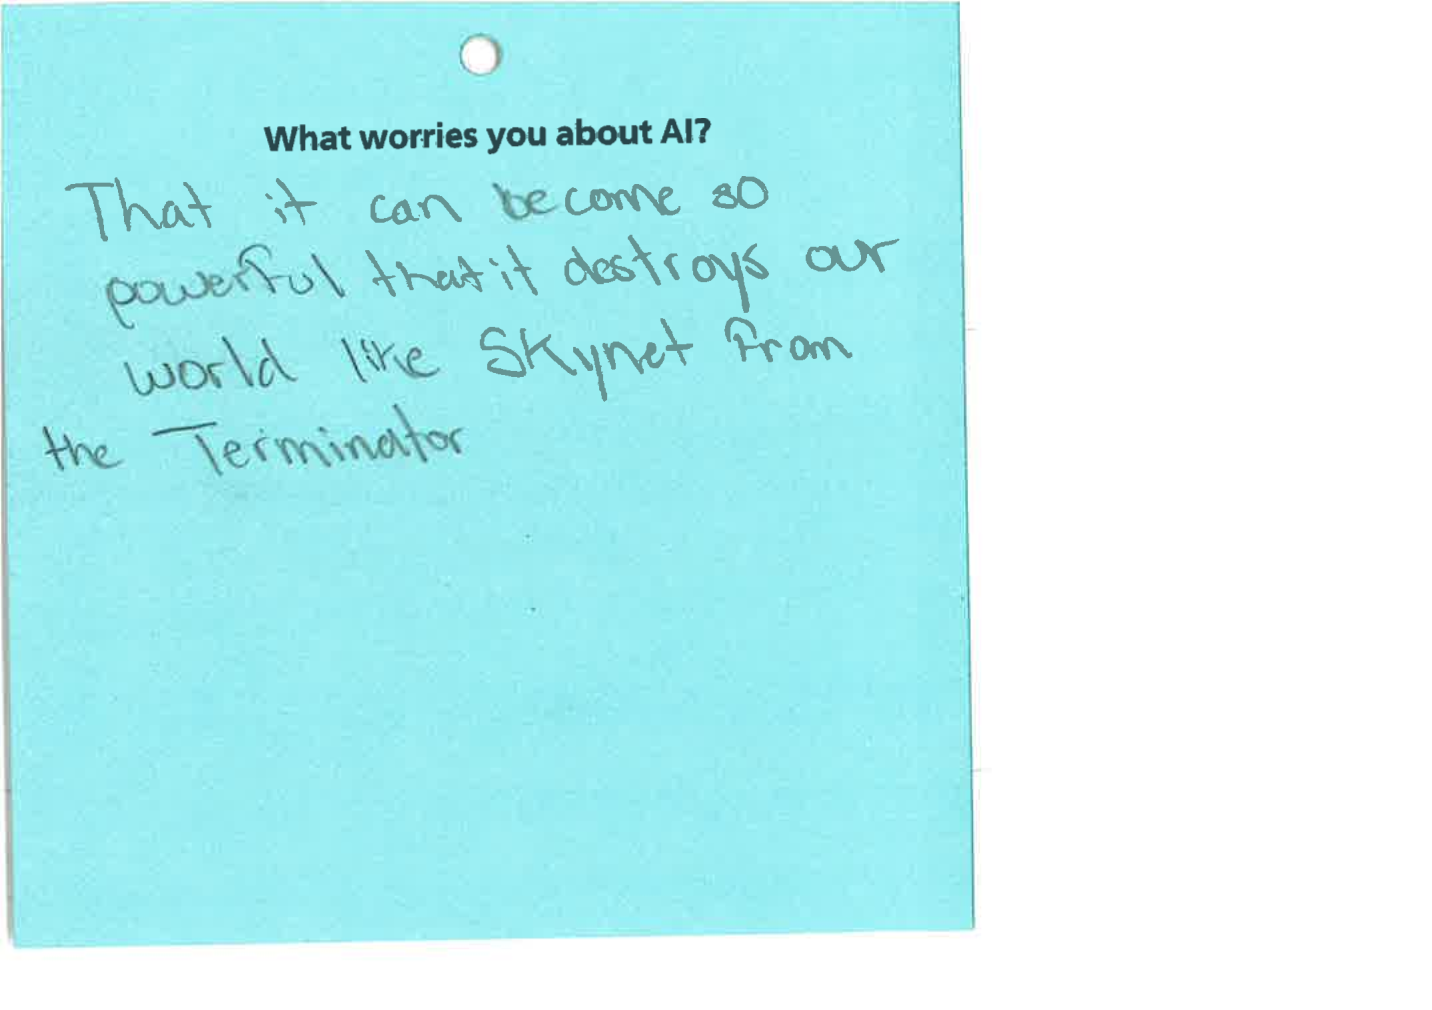 What worries you about AI?
That it can become so
powerful that it destroys our
world like Skynet from
the Terminator